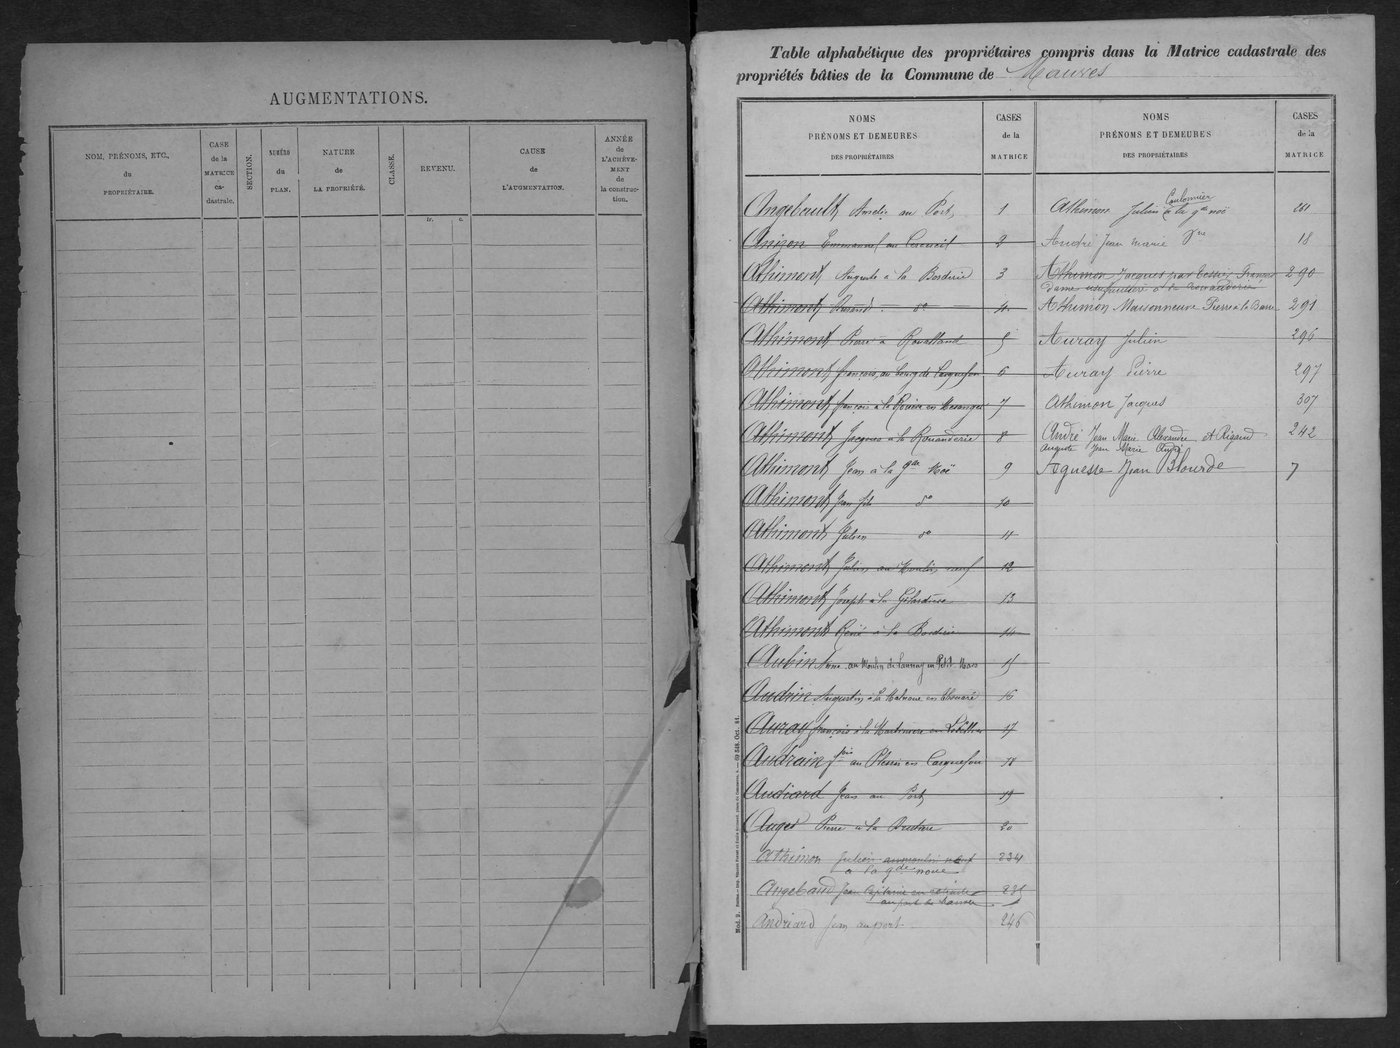 AUGMENTATIONS.
NOM, PRÉNOMS, ETC.,
du
PROPRIÉTAIRE.
CASE
de la
MATRICE
ca-
dastrale.
SECTION.
NUMÉRO
du
PLAN.
NATURE
de
LA PROPRIÉTÉ.
CLASSE.
REVENU.
fr. c.
CAUSE
de
L'AUGMENTATION.
ANNÉE
de
L'ACHÈVE-
MENT
de
la construc-
tion.
Table alphabétique des propriétaires compris dans la Matrice cadastrale des
propriétés bâties de la Commune de Mauves
NOMS
PRÉNOMS ET DEMEURES
DES PROPRIÉTAIRES
CASES
de la
MATRICE
Angebault, Amélie au Port 1
Anizon Emmanuel au 2
Athimont, Auguste à la Borderie 3
Athimont, d° 4
Athimont Pierre à 5
Athimont, François, au bourg de Carquefou 6
Athimont, François à la en Mésanger 7
Athimont, Jacques à la Rouauderie 8
Athimont, Jean à la gde Noë 9
Athimont, Jean fils d° 10
Athimont, Julien d° 11
Athimont, Julien au Moulin neuf 12
Athimont, Joseph à la 13
Athimont René à la Borderie 14
Aubin au Moulin de en Petit Mars 15
Audrin Augustin à la en Thouaré 16
Auray, François à la Martinière en 17
Audrain au Plessis en Carquefou 18
Audiard Jean au Port 19
Auger Pierre à la 20
Athimon Julien au moulin neuf 234
à la gde noue
Angebaud Jean Capitaine en retraite 235
au port de Mauves
Andriard Jean au port 246
NOMS
PRÉNOMS ET DEMEURES
DES PROPRIÉTAIRES
CASES
de la
MATRICE
Coulonnier
Athimon Julien à la gde noë 261
André Jean Marie Vve 18
Athimon Jacques par Tessier François 290
dame usufruitière à la Rouauderie
Athimon Maisonneuve Pierre à la Barre 291
Auray Julien 296
Auray Pierre 297
Athimon Jacques 307
André Jean Marie Alexandre et Rigaud 242
Auguste Jean Marie André
Aguesse Jean Blourde 7